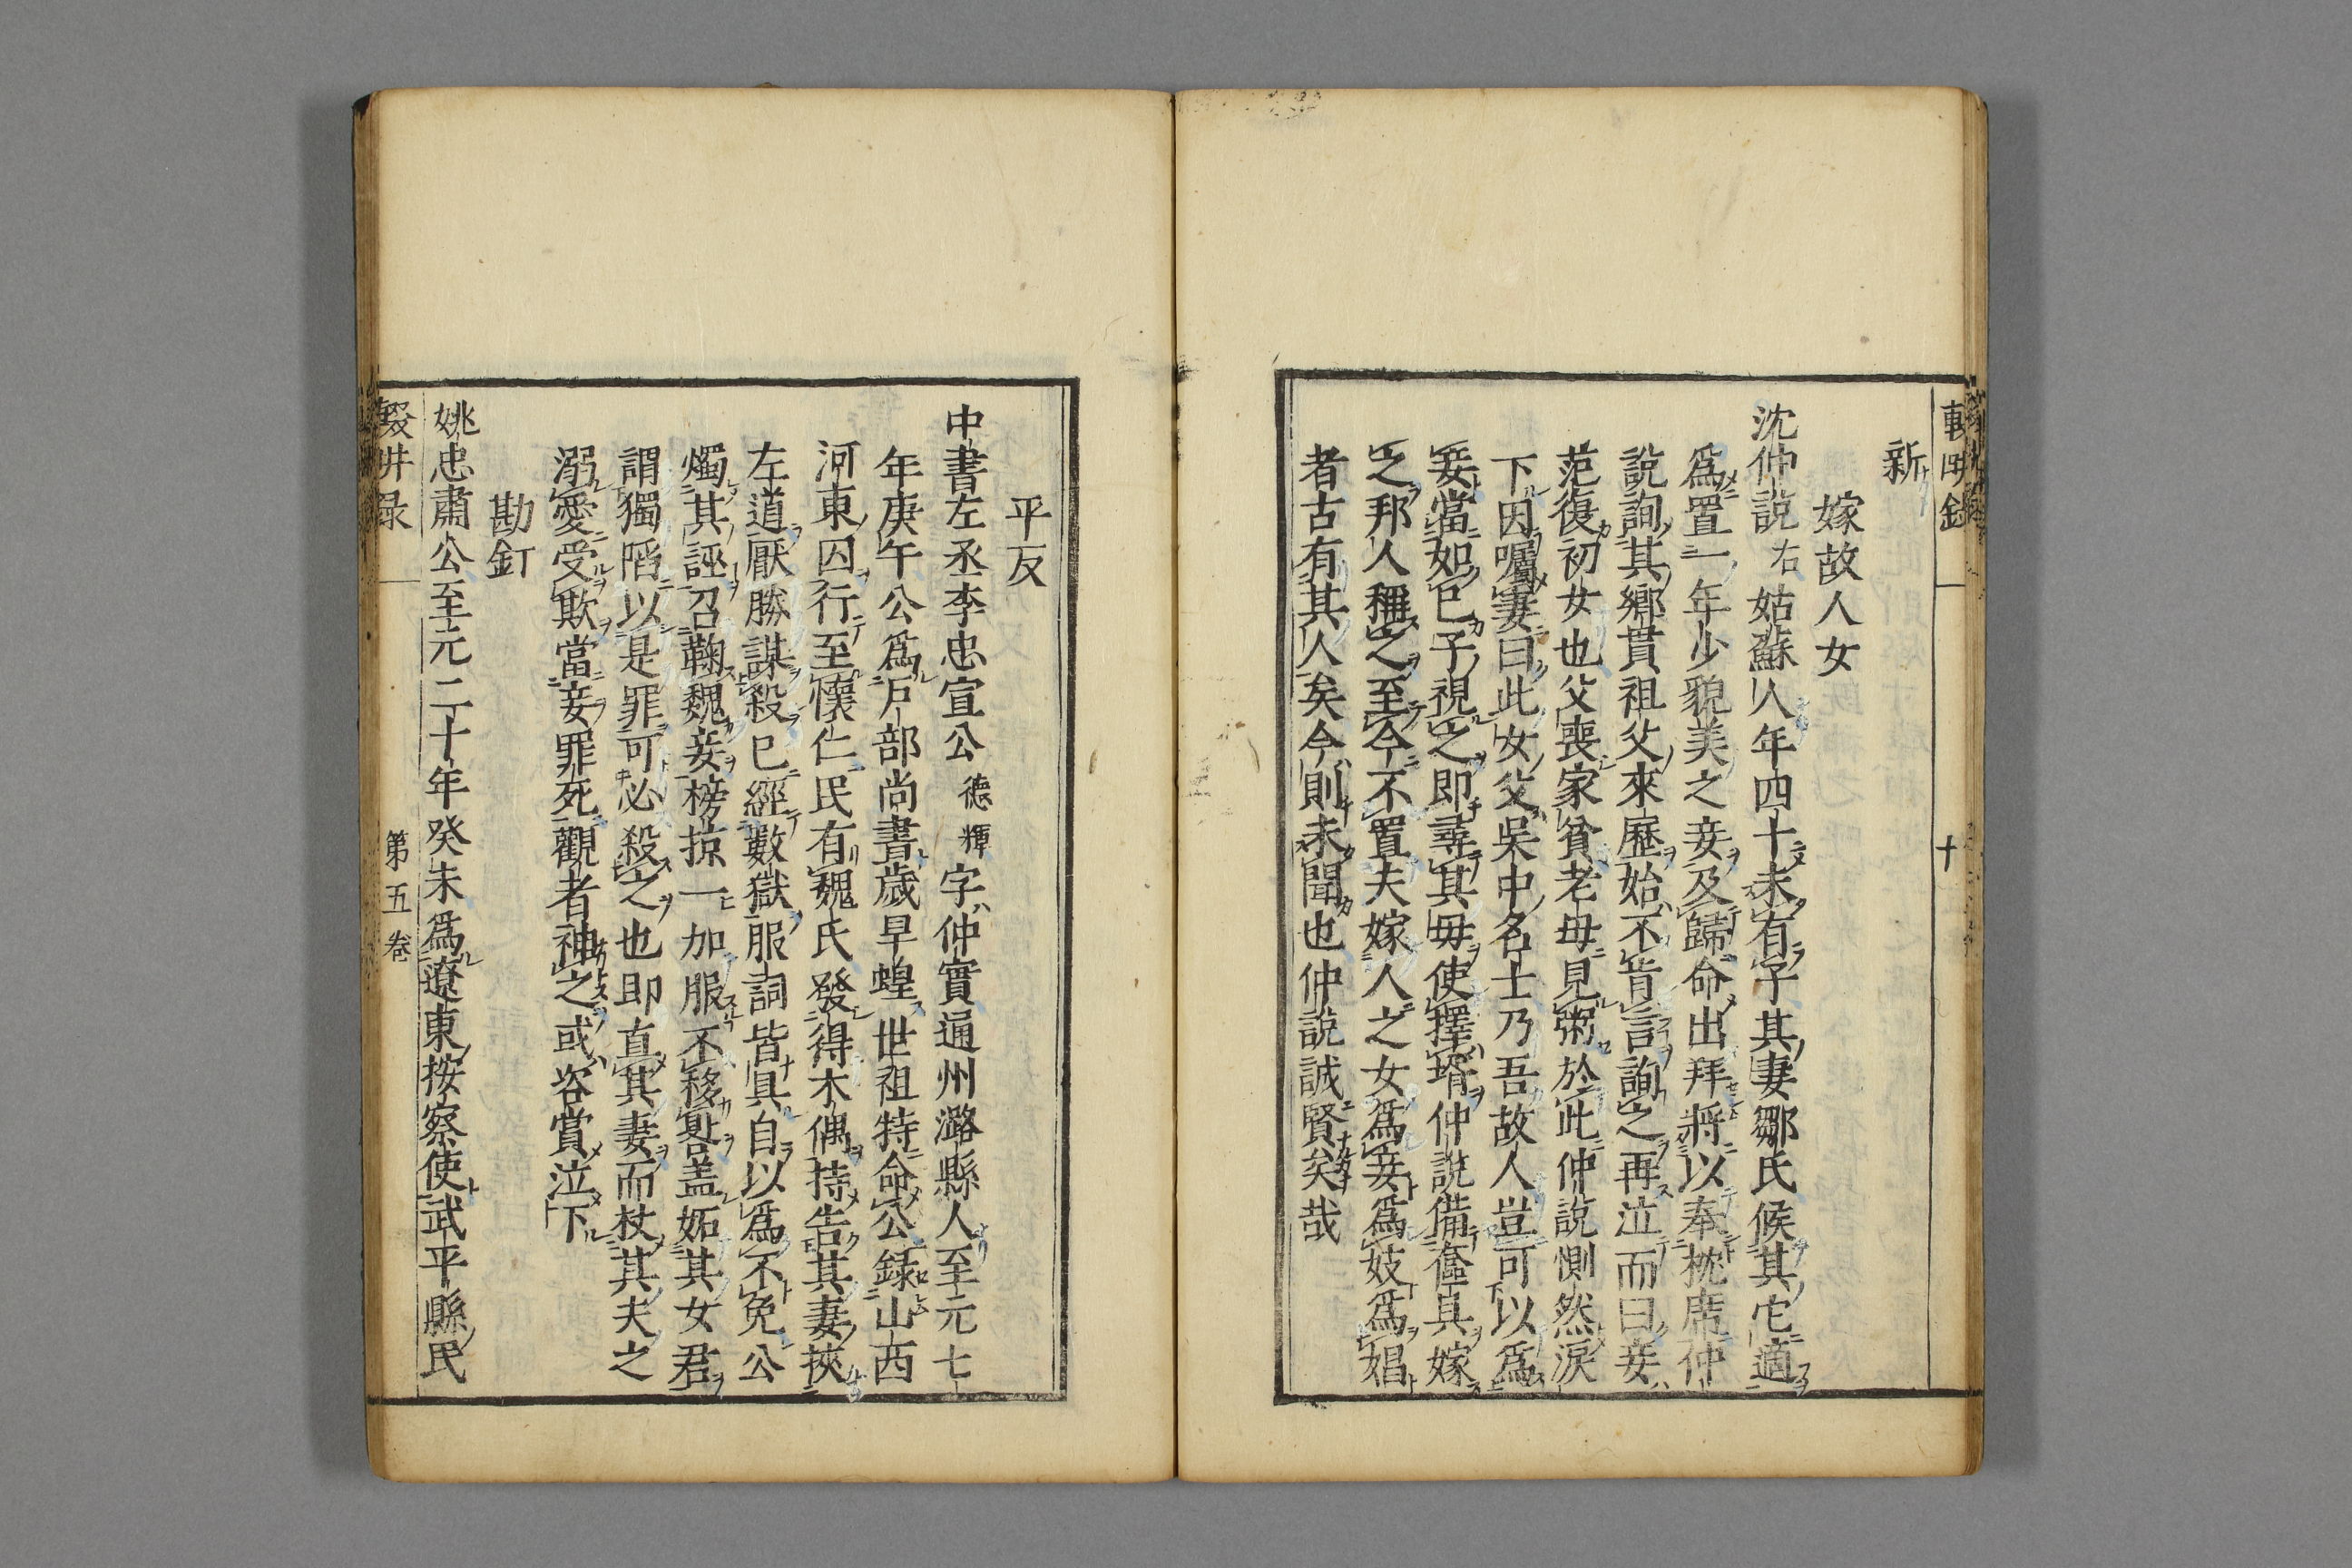 輟畊錄 十
新
嫁故人女
沈仲說右姑蘇人年四十未有子其妻鄒氏候其它適
爲置一年少貌美之妾及歸命出拜將以奉枕席仲
說詢其鄉貫祖父來歷始不肯言詢之再泣而曰妾
范復初女也父喪家貧老母見粥於此仲說惻然淚
下因囑妻曰此女父吳中名士乃吾故人豈可以爲
妾當如已子視之即尋其母使擇壻仲說備奩具嫁
之邦人稱之至今不置夫嫁人之女爲妾爲妓爲娼
者古有其人矣今則未聞也仲說誠賢矣哉
平反
中書左丞李忠宣公德輝字仲實通州潞縣人至元七
年庚午公爲戶部尚書歲旱蝗世祖特命公錄山西
河東囚行至懷仁民有魏氏發得木偶持告其妻挾
左道厭勝謀殺已經數獄服詞皆具自以爲不免公
燭其誣召鞫魏妾榜掠一加服不移晷盖妬其女君
謂獨陷以是罪可必殺之也即直其妻而杖其夫之
溺愛受欺當妾罪死觀者神之或咨賞泣下
勘釘
姚忠肅公至元二十年癸未爲遼東按察使武平縣民
輟畊录 第五卷